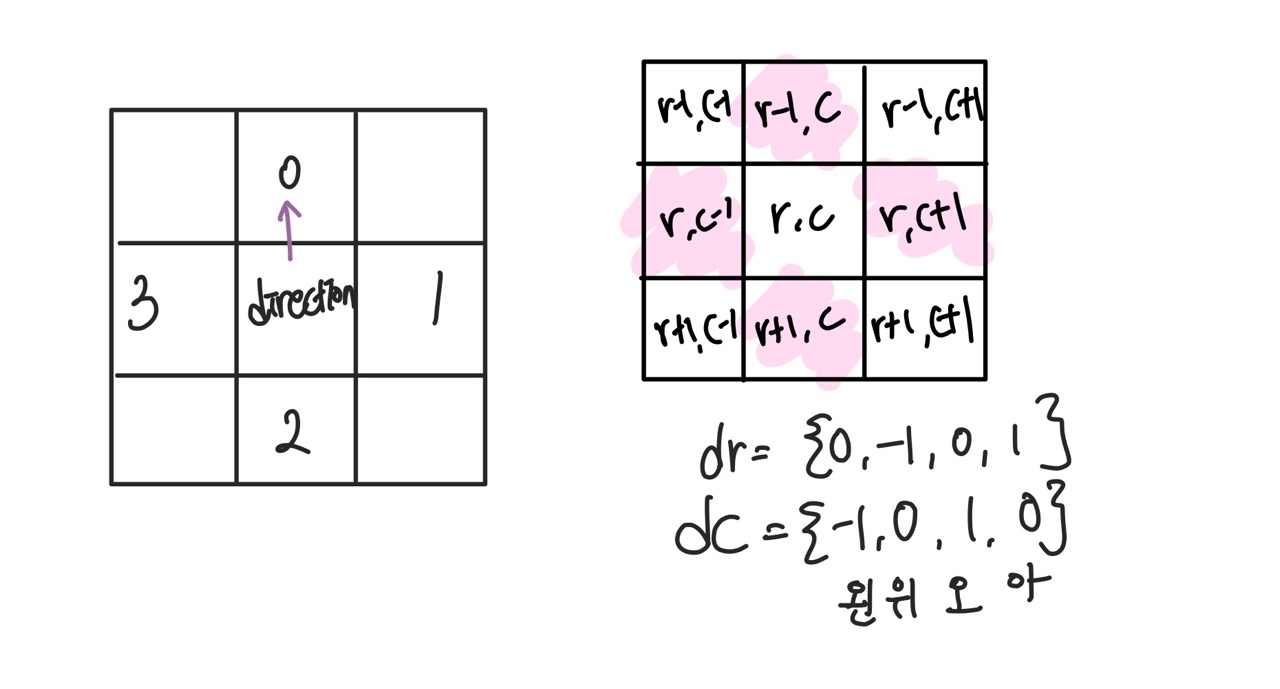 0
3 direction 1
2
r-1,c-1 r-1,c r-1,c+1
r,c-1 r,c r,c+1
r+1,c-1 r+1,c r+1,c+1
dr= {0,-1,0,1}
dc={-1,0,1,0}
왼 위 오 아